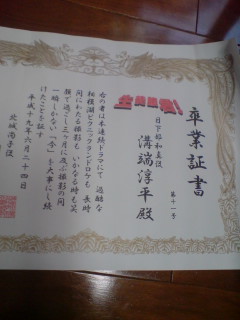 卒業証書
第十一号
生徒諸君!
日下部和真役
溝端淳平殿
右の者は本連続ドラマにて過酷な
相模湖ピクニックランドロケも長時
間にわたる撮影もいかなる時も笑
顔で過ごし三ヶ月に及ぶ撮影の間
一瞬しかない「今」を大事にし続
けたことを証す
平成十九年六月二十四日
北城尚子役